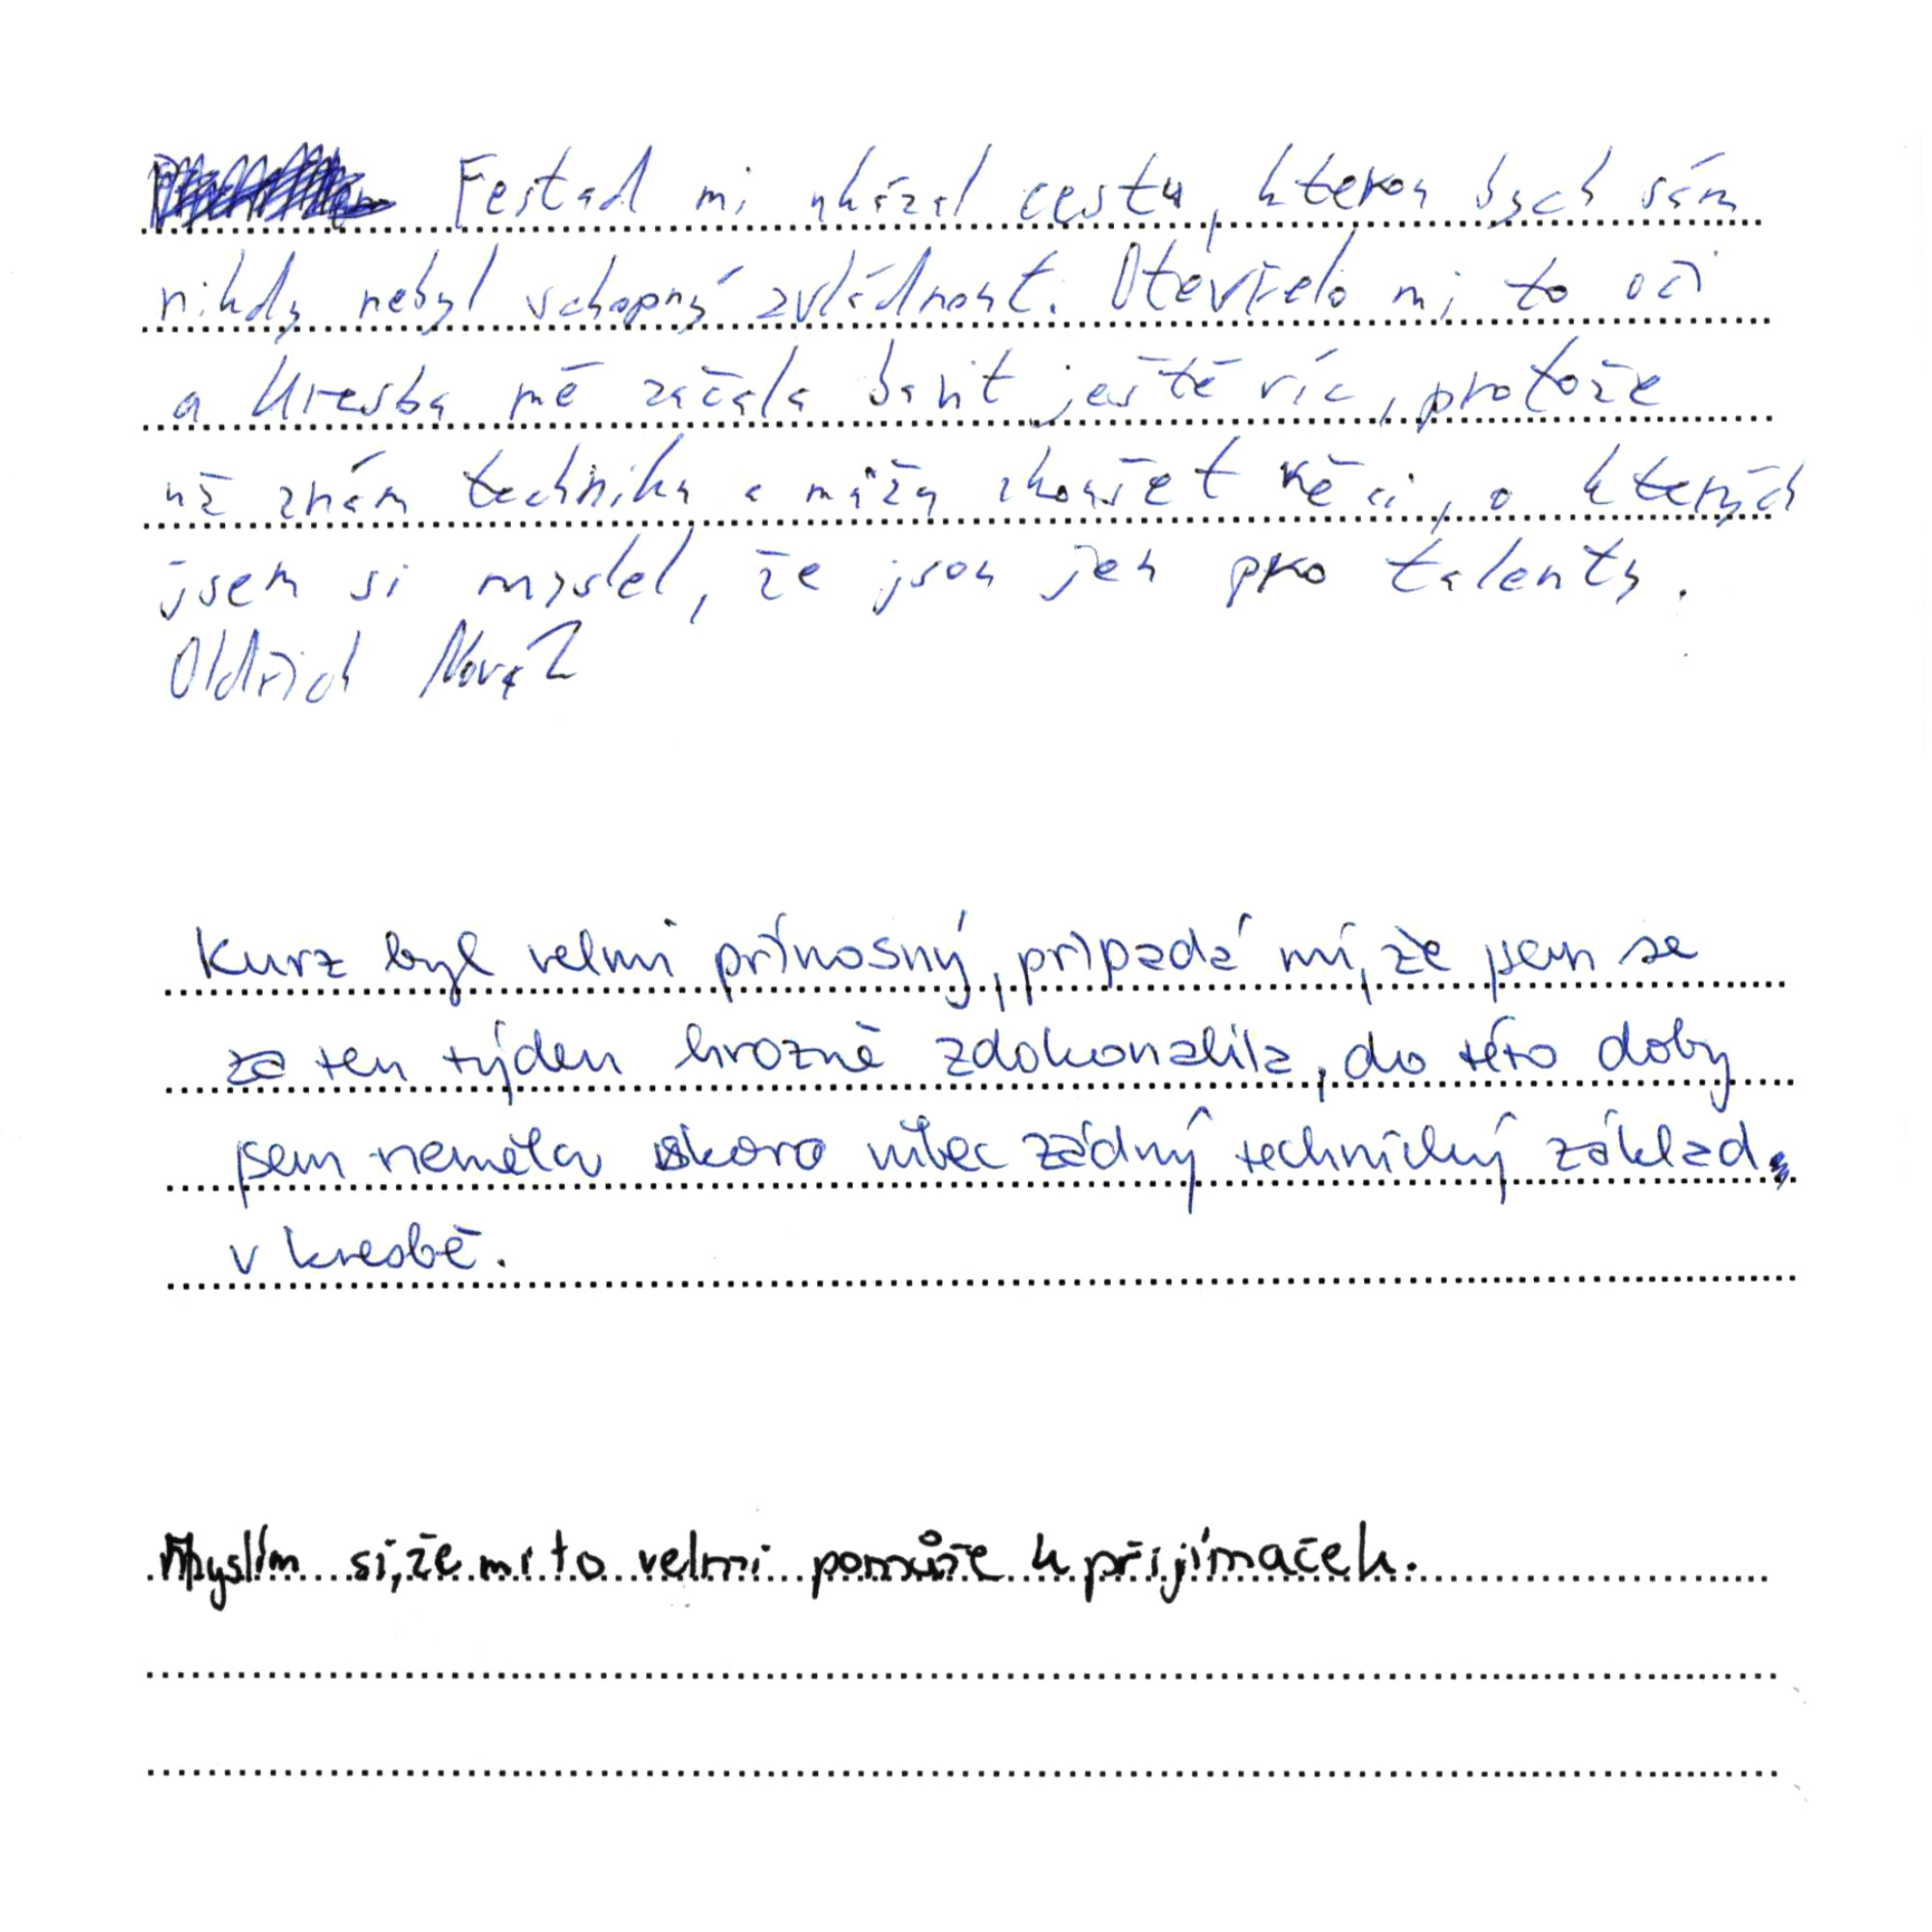 Festad mi ukázal cestu, kterou bych sám
nikdy nebyl schopný zvládnout. Otevřelo mi to oči
a kresba mě začala bavit ještě víc, protože
už znám techniku a můžu zkoušet věci, o kterých
jsem si myslel, že jsou jen pro talenty.
Oldřich Novák
Kurz byl velmi přínosný, připadá mi, že jsem se
za ten týden hrozně zdokonalila, do této doby
jsem neměla skoro vůbec žádný technický základ
v kresbě.
Myslím si, že mi to velmi pomůže k přijímaček.